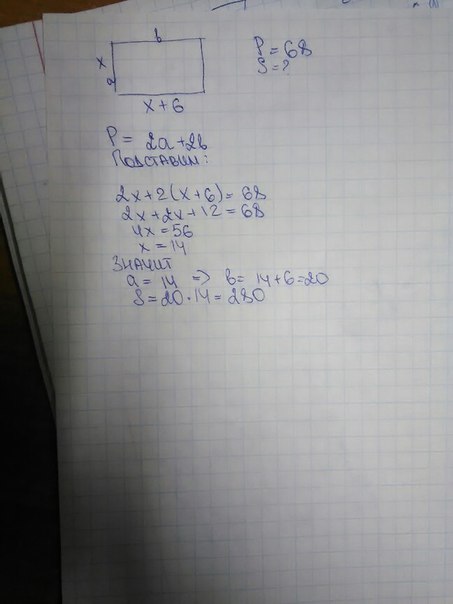 b
P = 68
x
S = ?
a
x + 6
P = 2a + 2b
Подставим:
2x + 2(x + 6) = 68
2x + 2x + 12 = 68
4x = 56
x = 14
Значит
a = 14 => b = 14 + 6 = 20
S = 20 · 14 = 280